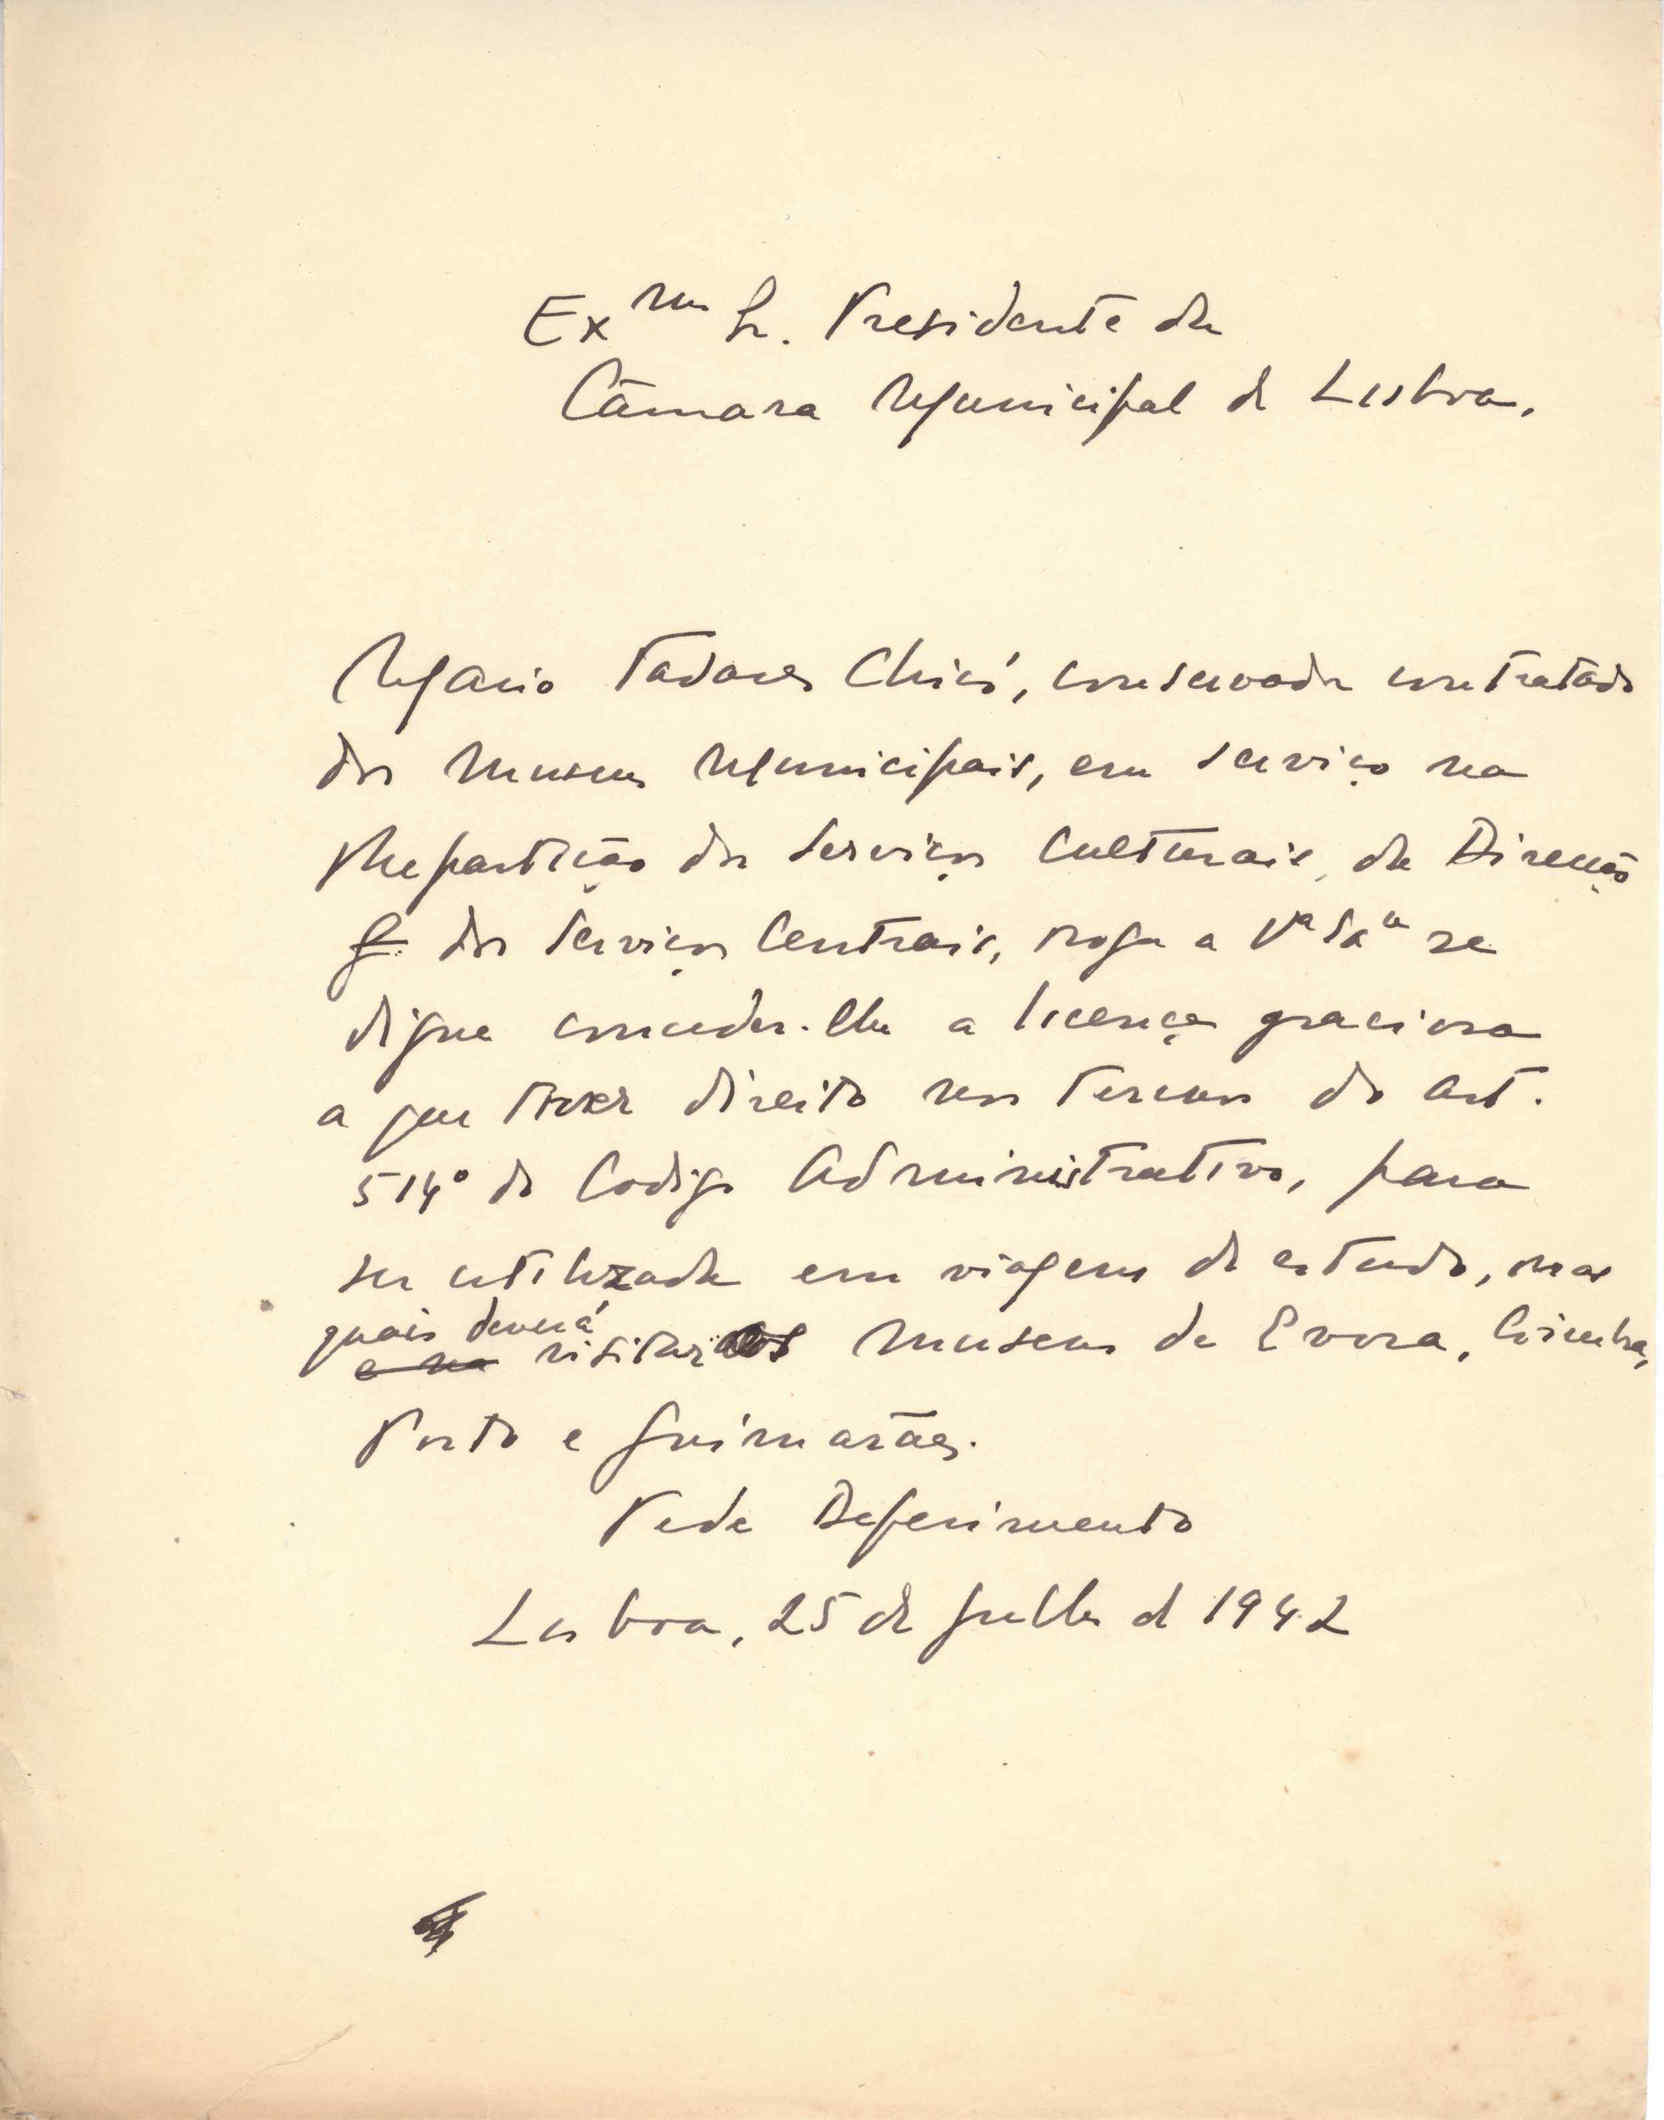 Exmo Sr. Presidente da
Câmara Municipal de Lisboa.
Mario Tavares Chicó, conservador contratado
dos Museus Municipais, em serviço na
Repartição dos Serviços Culturais, da Direcção
G. dos Serviços Centrais, roga a Vª Exª se
digne conceder-lhe a licença graciosa
a que tiver direito nos termos do art.
514º do Codigo Administrativo, para
ser utilizada em viagens de estudo, nas
quais deverá
visitar os museus de Evora, Coimbra,
Porto e Guimarães.
Pede Deferimento
Lisboa, 25 de Julho de 1942